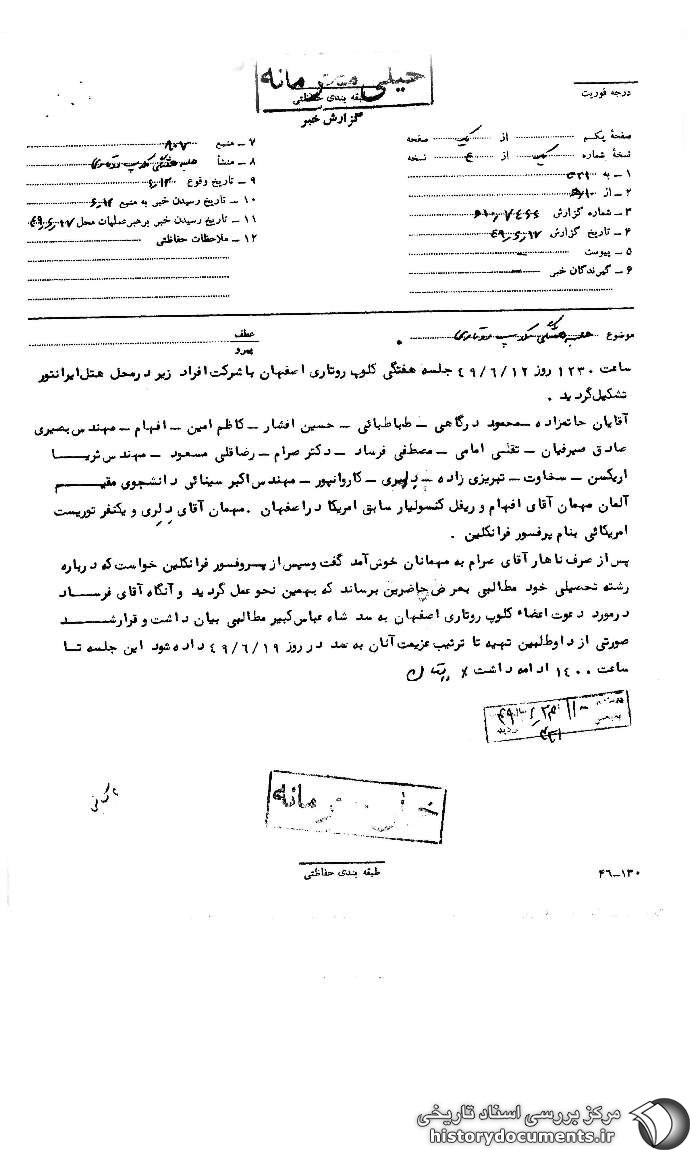 خیلی محرمانه
طبقه بندی حفاظتی
گزارش خبر
درجه فوریت
صفحهٔ یکم از یک صفحه
نسخهٔ شماره یک از ۴ نسخه
۱ـ به ۵۳۱
۲ـ از
۳ـ شماره گزارش
۴ـ تاریخ گزارش ۴۹٫۶٫۱۷
۵ـ پیوست ـ
۶ـ گیرندگان خبر ـ
۷ـ منبع ۸۰۷
۸ـ منشأ جلسه هفتگی کلوپ روتاری
۹ـ تاریخ وقوع ۶٫۱۲
۱۰ـ تاریخ رسیدن خبر به منبع ۶٫۱۲
۱۱ـ تاریخ رسیدن خبر برهبر عملیات محل ۴۹٫۶٫۱۷
۱۲ـ ملاحظات حفاظتی
موضوع جلسه هفتگی کلوپ روتاری .
عطف
پیرو
ساعت ۱۲۳۰ روز ۴۹/۶/۱۲ جلسه هفتگی کلوپ روتاری اصفهان با شرکت افراد زیر در محل هتل ایرانتور
تشکیل گردید .
آقایان حاتمزاده ـ محمود درگاهی ـ طباطبائی ـ حسین افشار ـ کاظم امین ـ افهام ـ مهندس بصیری
صادق صیرفیان ـ تقی امامی ـ مصطفی فرساد ـ دکتر صرام ـ رضاقلی مسعود ـ مهندس ثریا
اریکسن ـ سخاوت ـ تبریزی زاده ـ دلیری ـ کاروانپور ـ مهندس اکبر سینائی دانشجوی مقیم
آلمان مهمان آقای افهام و ریفل کنسولیار سابق امریکا در اصفهان . مهمان آقای دلری و یکنفر توریست
امریکائی بنام پرفسور فرانکلین .
پس از صرف ناهار آقای صرام به مهمانان خوش آمد گفت و سپس از پروفسور فرانکلین خواست که درباره
رشته تحصیلی خود مطالبی بعرض حاضرین برساند که بهمین نحو عمل گردید و آنگاه آقای فرساد
در مورد دعوت اعضاء کلوپ روتاری اصفهان به سد شاه عباس کبیر مطالبی بیان داشت و قرار شد
صورتی از داوطلبین تهیه تا ترتیب عزیمت آنان به سد در روز ۴۹/۶/۱۹ داده شود این جلسه تا
ساعت ۱۴۰۰ ادامه داشت
محرمانه
طبقه بندی حفاظتی
۴۶ـ۱۳۰
مرکز بررسی اسناد تاریخی
historydocuments.ir